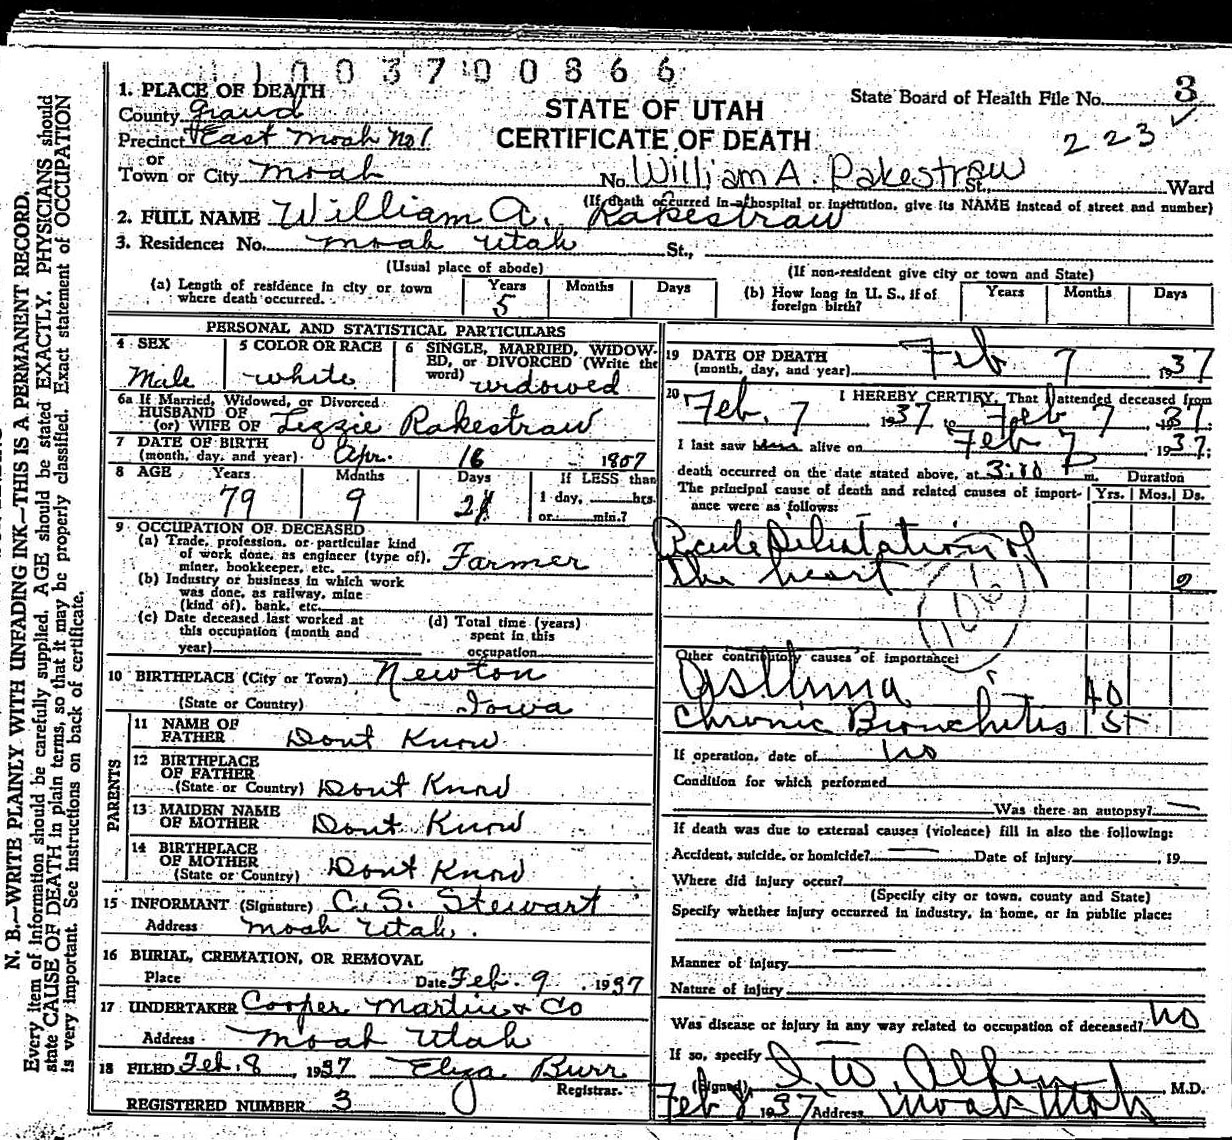 11003700866
1. PLACE OF DEATH
County Grand
Precinct East Moab No 1
or
Town or City Moab
STATE OF UTAH
CERTIFICATE OF DEATH
State Board of Health File No. 3
223
No. William A. Rakestraw St., Ward
(If death occurred in a hospital or institution, give its NAME instead of street and number)
2. FULL NAME William A. Rakestraw
3. Residence: No. Moab Utah St.,
(Usual place of abode)
(If non-resident give city or town and State)
(a) Length of residence in city or town where death occurred. Years 5 Months Days
(b) How long in U. S., if of foreign birth? Years Months Days
PERSONAL AND STATISTICAL PARTICULARS
4 SEX Male
5 COLOR OR RACE white
6 SINGLE, MARRIED, WIDOWED, or DIVORCED (Write the word) widowed
6a If Married, Widowed, or Divorced
HUSBAND OF
(or) WIFE OF Lizzie Rakestraw
7 DATE OF BIRTH
(month, day, and year) Apr. 16 1857
8 AGE Years 79 Months 9 Days 21
If LESS than
1 day, hrs.
or min.?
9 OCCUPATION OF DECEASED
(a) Trade, profession, or particular kind
of work done, as engineer (type of),
miner, bookkeeper, etc. Farmer
(b) Industry or business in which work
was done, as railway, mine
(kind of), bank, etc.
(c) Date deceased last worked at
this occupation (month and
year)
(d) Total time (years)
spent in this
occupation
10 BIRTHPLACE (City or Town) Newton
(State or Country) Iowa
PARENTS
11 NAME OF
FATHER Dont Know
12 BIRTHPLACE
OF FATHER
(State or Country) Dont Know
13 MAIDEN NAME
OF MOTHER Dont Know
14 BIRTHPLACE
OF MOTHER
(State or Country) Dont Know
15 INFORMANT (Signature) C.S. Stewart
Address Moab Utah.
16 BURIAL, CREMATION, OR REMOVAL
Place Date Feb. 9 , 1937
17 UNDERTAKER Cooper Martin & Co
Address Moab Utah
18 FILED Feb. 8 , 1937 Eliza Burr
Registrar.
REGISTERED NUMBER 3
19 DATE OF DEATH
(month, day, and year) Feb 7 1937
20 I HEREBY CERTIFY, That I attended deceased from
Feb. 7 1937 to Feb 7 1937.
I last saw him alive on Feb 7 1937;
death occurred on the date stated above, at 3:10 P m.
Duration
The principal cause of death and related causes of importance were as follows:
Yrs. Mos. Ds.
Acute Dilatation of
the heart 2
Other contributory causes of importance:
Asthma 40
Chronic Bronchitis 5+
If operation, date of no
Condition for which performed
Was there an autopsy? —
If death was due to external causes (violence) fill in also the following:
Accident, suicide, or homicide? — Date of injury , 19
Where did injury occur?
(Specify city or town, county and State)
Specify whether injury occurred in industry, in home, or in public place:
Manner of injury
Nature of injury
Was disease or injury in any way related to occupation of deceased? No
If so, specify
(Signed) I. W. Allen M.D.
Feb 8, 1937 Address Moab Utah
N. B.—WRITE PLAINLY WITH UNFADING INK—THIS IS A PERMANENT RECORD.
Every item of information should be carefully supplied. AGE should be stated EXACTLY. PHYSICIANS should
state CAUSE OF DEATH in plain terms, so that it may be properly classified. Exact statement of OCCUPATION
is very important. See instructions on back of certificate.